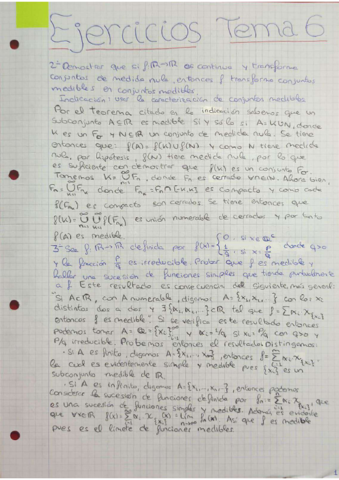 Ejercicios Tema 6
2- Demostrar que si f: R→R es continua y transforma
conjuntos de medida nula, entonces f transforma conjuntos
medibles en conjuntos medibles
Indicación: Usar la caracterización de conjuntos medibles
Por el Teorema citado en la indicación sabemos que un
subconjunto A⊆R es medible si y solo si A=K∪N, donde
K es un Fσ y N⊆R un conjunto de medida nula. Se tiene
entonces que: f(A)=f(K)∪f(N) y como N tiene medida
nula, por hipótesis, f(N) tiene medida nula, por lo que
es suficiente con demostrar que f(K) es un conjunto Fσ
Tomemos K=∪Fn, donde Fn es cerrado ∀n∈N. Ahora bien,
Fn=∪Fnk donde Fnk=Fn∩[-k,k] es compacto y como cada
f(Fnk) es compacto son cerrados. Se tiene entonces que
f(K)=∪∪f(Fnk) es unión numerable de cerrados y por tanto
f(A) es medible.
3- Sea f: R→R definida por f(x)= donde q>0
y la fracción p/q es irreducible. Probar que f es medible y
hallar una sucesión de funciones simples que tienda puntualmente
a f. Este resultado es consecuencia del siguiente, más general:
Si A⊂R, con A numerable, digamos A={x1,x2,...} con los xi
distintos dos a dos y ⊂R tal que
entonces f es medible. Si se verifica este resultado entonces
podemos tomar A=Q= y si con q>0 y
p/q irreducible. Probemos entonces el resultado. Distinguimos:
· Si A es finito, digamos entonces
la cual es evidentemente simple y medible pues {xi} es un
subconjunto medible de R.
· Si A es infinito, digamos A={x1,...,xn,...}, entonces podemos
considerar la sucesión de funciones definida por que
es una sucesión de funciones simples y medibles. Además es evidente
que ∀x∈R Así que f es medible
pues es el límite de funciones medibles.
1